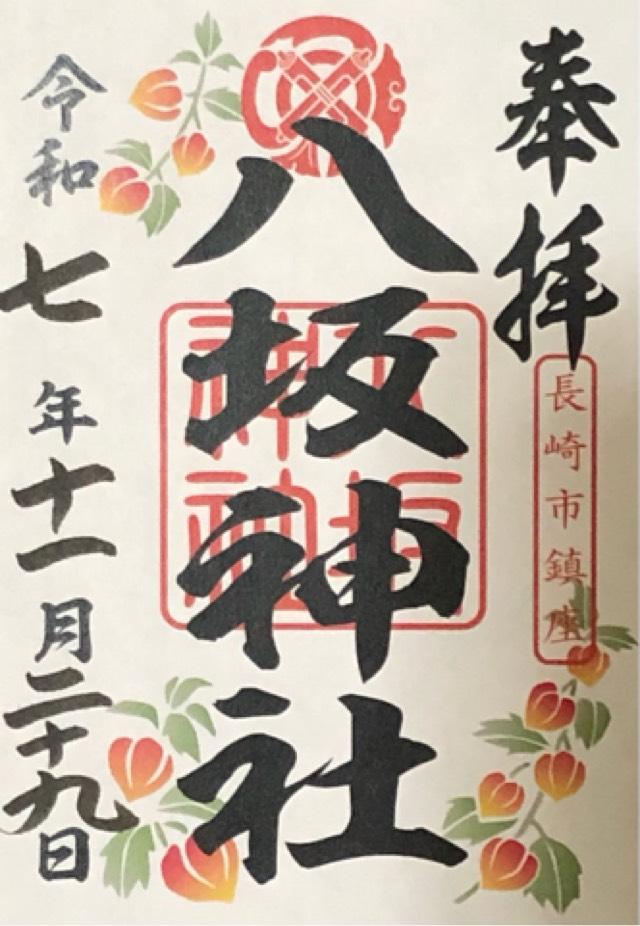 奉拝
長崎市鎮座
八坂神社
八坂神社
令和七年十一月二十九日